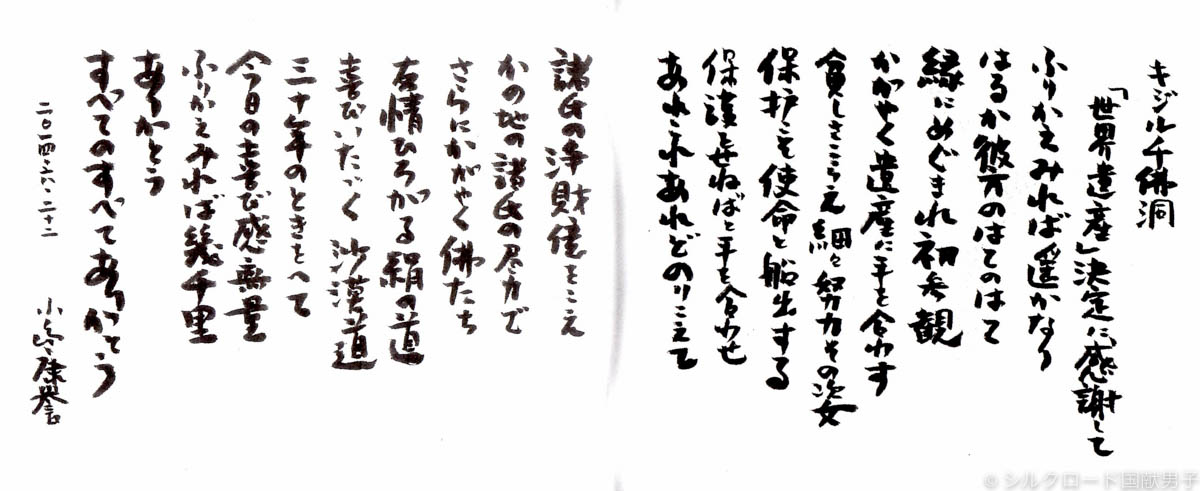 キジル千佛洞
「世界遺産」決定に感謝して
ふりかえみれば遥かなり
はるか彼方のはてのはて
縁にめぐまれ初参観
かがやく遺産に手を合わす
貧しさこらえ細々努力その姿
保护こそ使命と船出する
保護せねばと手を合わせ
あれこれあれどのりこえて
諸氏の浄財億をこえ
かの地の諸氏の尽力で
さらにかがやく佛たち
友情ひろがる絹の道
喜びいただく沙漠道
三十年のときをへて
今日の喜び感無量
ふりかえみれば幾千里
ありがとう
すべてのすべてありがとう
二〇一四・六・二十二
小島康誉
© シルクロード国献男子